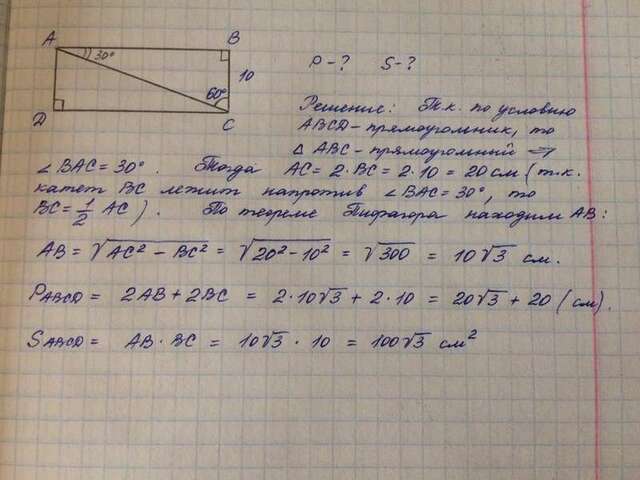 A
B
C
D
30°
60°
10
P-? S-?
Решение: Т.к по условию
ABCD-прямоугольник, то
Δ ABC-прямоугольный ⇒
∠ BAC = 30°. Тогда AC = 2·BC = 2·10 = 20 см (т.к.
катет BC лежит напротив ∠ BAC = 30°, то
BC = 1/2 AC). По теореме Пифагора находим AB:
AB = √AC² - BC² = √20² - 10² = √300 = 10√3 см.
PABCD = 2AB + 2BC = 2·10√3 + 2·10 = 20√3 + 20 (см).
SABCD = AB · BC = 10√3 · 10 = 100√3 см²